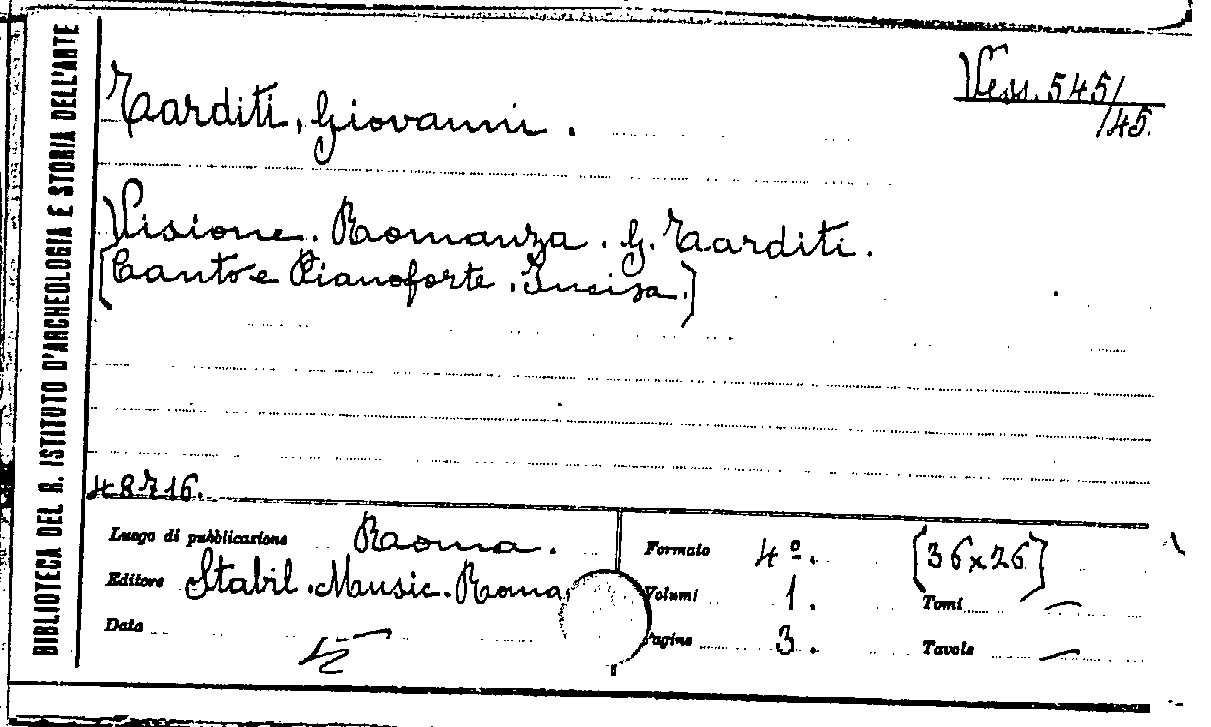 BIBLIOTECA DEL R. ISTITUTO D'ARCHEOLOGIA E STORIA DELL'ARTE
Vess. 545/
/45.
Tarditi, Giovanni.
Visione. Romanza. G. Tarditi.
[Canto e Pianoforte. Incisa.]
48716.
Luogo di pubblicazione Roma.
Editore Stabil. Music. Roma
Data
Formato 4º. [36x26]
Volumi 1. Tomi —
Pagine 3. Tavole —